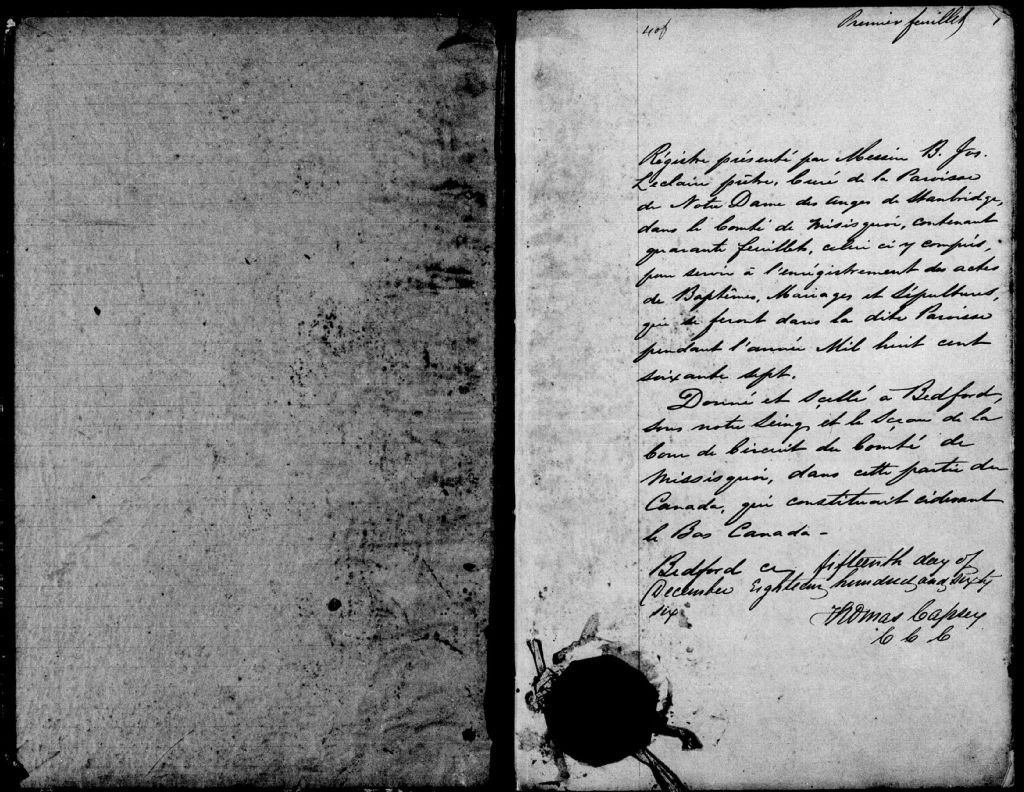 40f
Premier feuillet
Régistre présenté par Messire B. Jos.
Leclaire prêtre, Curé de la Paroisse
de Notre Dame des Anges de Stanbridge,
dans le Comté de Misisquoi, contenant
quarante feuillets, celui ci y compris,
pour servir à l'enrégistrement des actes
de Baptêmes, Mariages et Sépultures,
qui se feront dans la dite Paroisse
pendant l'année Mil huit cent
soixante sept.
Donné et Scellé à Bedford,
sous notre Seing et le Sceau de la
Cour de Circuit du Comté de
Missisquoi, dans cette partie du
Canada, qui constituait cidevant
le Bas Canada -
Bedford ce fifteenth day of
December Eighteen hundred and Sixty
six
Thomas Capsey
C C C